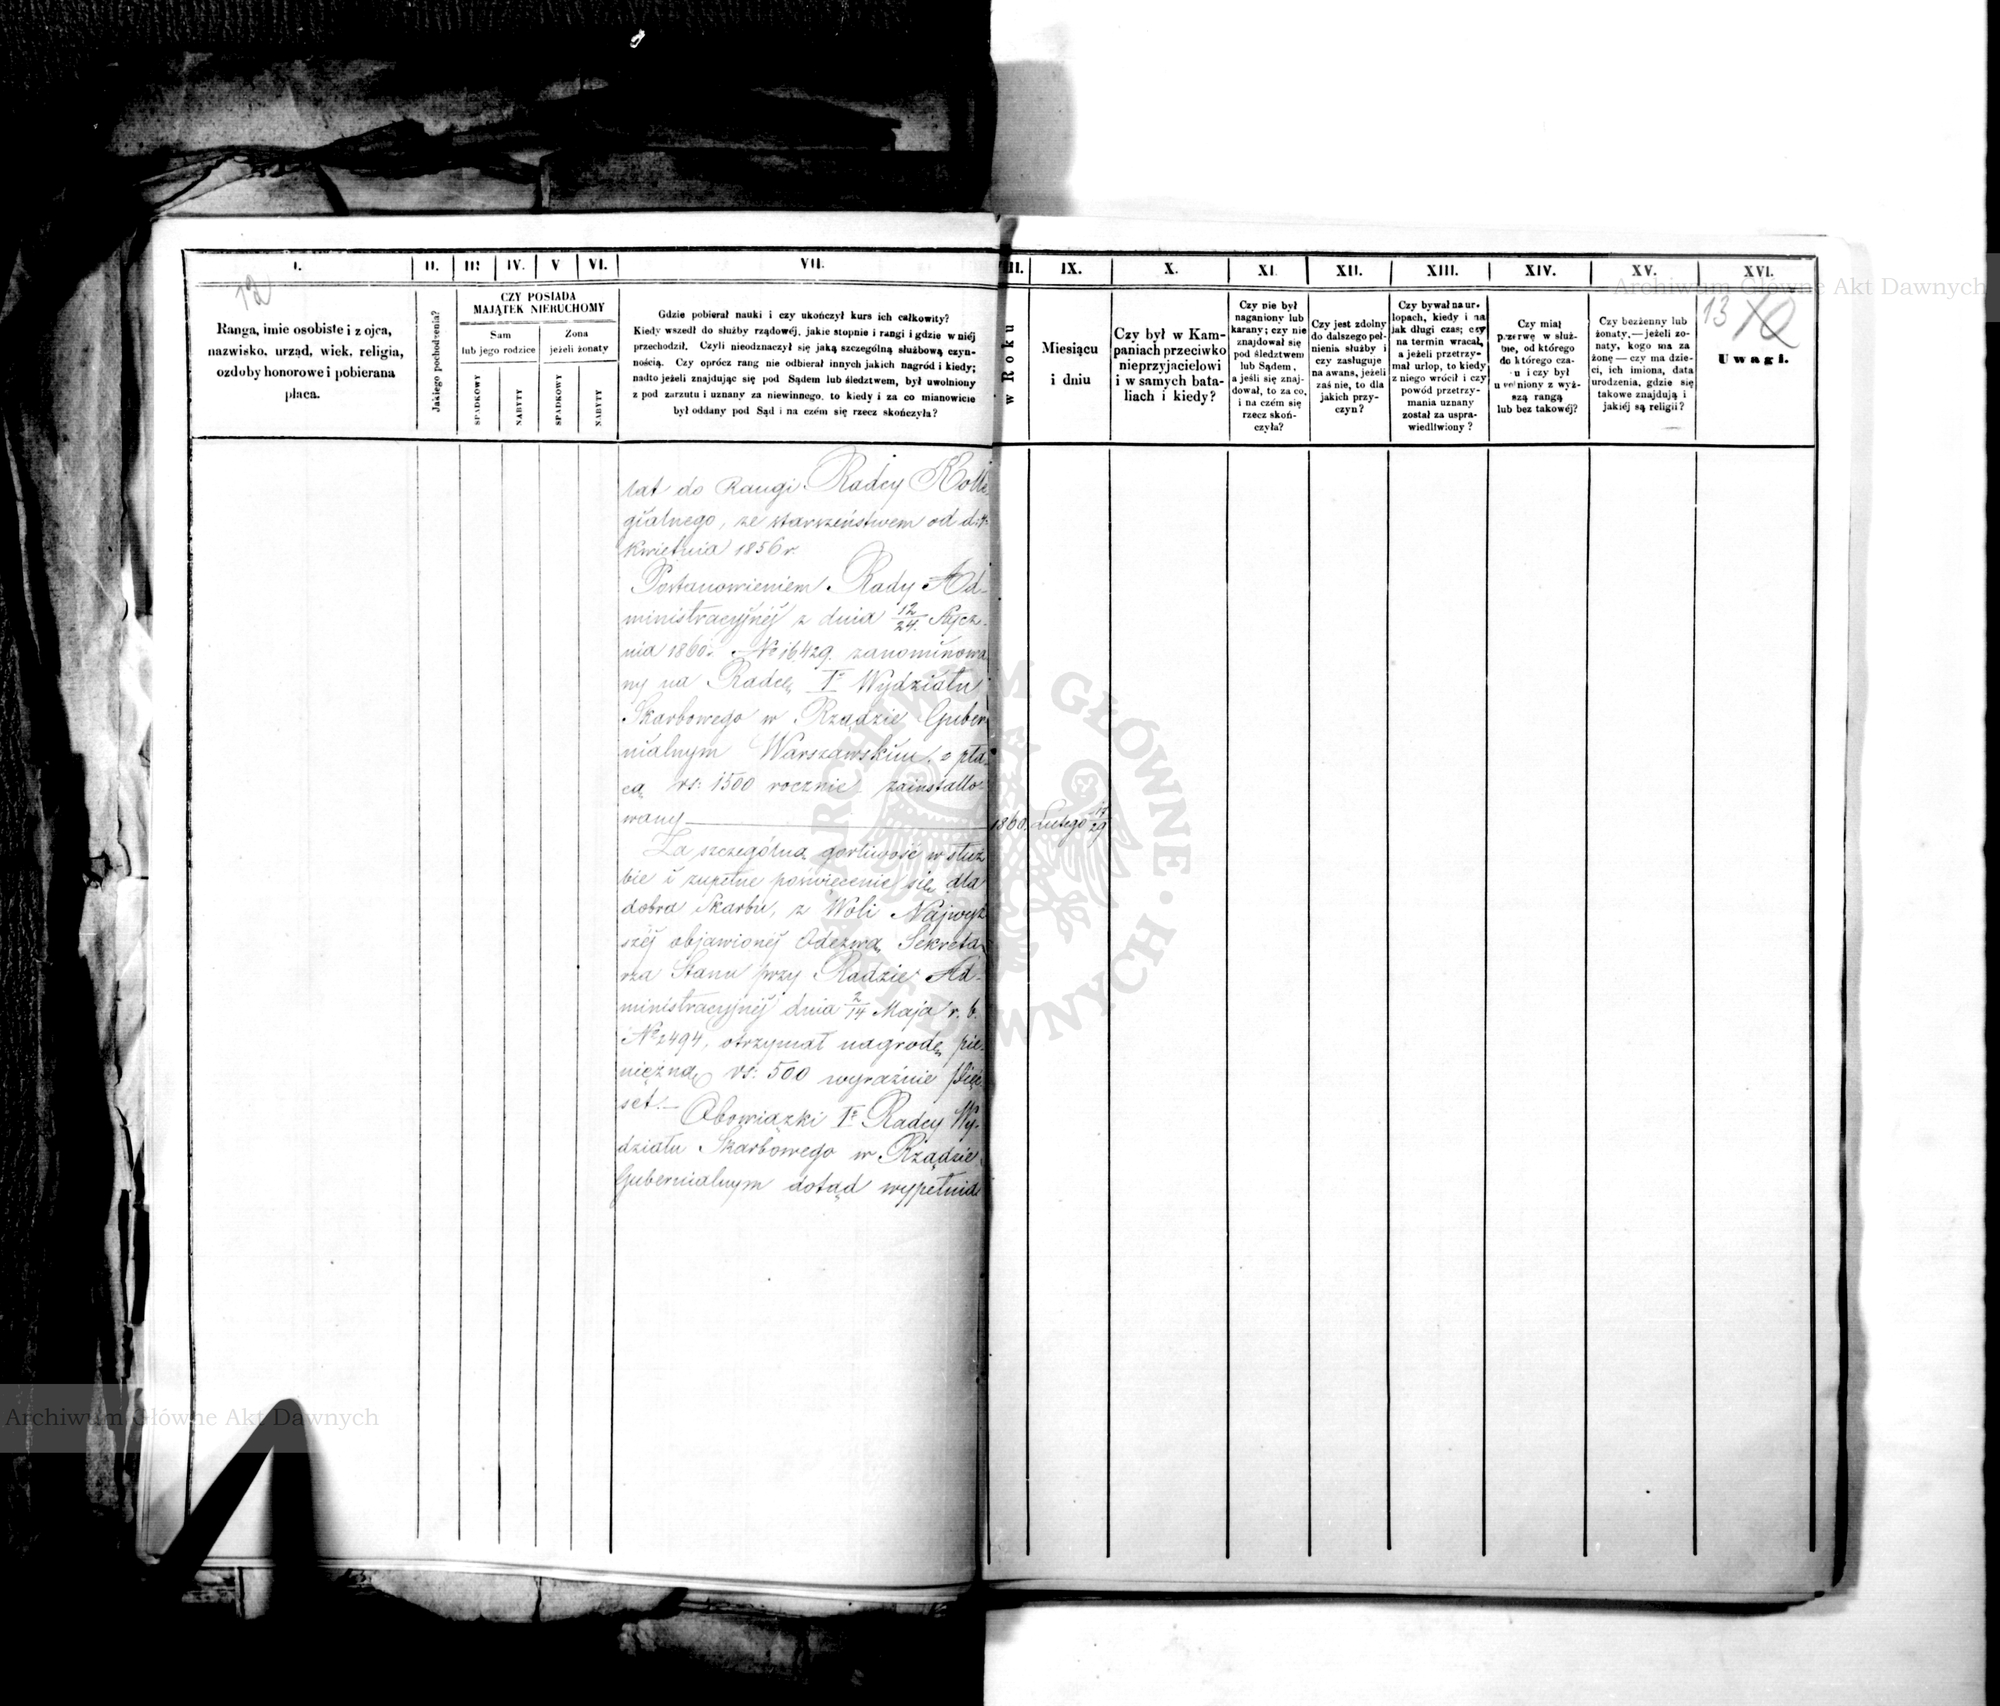 I.
II.
III
IV.
V
VI.
VII.
VIII.
IX.
X.
XI.
XII.
XIII.
XIV.
XV.
XVI.
12
13
10
Ranga, imie osobiste i z ojca,
nazwisko, urząd, wiek, religia,
ozdoby honorowe i pobierana
płaca.
Jakiego pochodzenia?
CZY POSIADA
MAJĄTEK NIERUCHOMY
Sam
lub jego rodzice
Żona
jeżeli żonaty
SPADKOWY
NABYTY
SPADKOWY
NABYTY
Gdzie pobierał nauki i czy ukończył kurs ich całkowity?
Kiedy wszedł do służby rządowéj, jakie stopnie i rangi i gdzie w niéj
przechodził. Czyli nieodznaczył się jaką szczególną służbową czyn-
nością. Czy oprócz rang nie odbierał innych jakich nagród i kiedy;
nadto jeżeli znajdując się pod Sądem lub śledztwem, był uwolniony
z pod zarzutu i uznany za niewinnego, to kiedy i za co mianowicie
był oddany pod Sąd i na czém się rzecz skończyła?
w Roku
Miesiącu
i dniu
Czy był w Kam-
paniach przeciwko
nieprzyjacielowi
i w samych bata-
liach i kiedy?
Czy nie był
naganiony lub
karany; czy nie
znajdował się
pod śledztwem
lub Sądem,
a jeśli się znaj-
dował, to za co,
i na czém się
rzecz skoń-
czyła?
Czy jest zdolny
do dalszego peł-
nienia służby i
czy zasługuje
na awans, jeżeli
zaś nie, to dla
jakich przy-
czyn?
Czy bywał na ur-
lopach, kiedy i na
jak długi czas; czy
na termin wracał,
a jeżeli przetrzy-
mał urlop, to kiedy
z niego wrócił i czy
powód przetrzy-
mania uznany
został za uspra-
wiedliwiony?
Czy miał
przerwę w służ-
bie, od którego
do którego cza-
su i czy był
uwolniony z wyż-
szą rangą
lub bez takowéj?
Czy bezżenny lub
żonaty,—jeżeli żo-
naty, kogo ma za
żonę — czy ma dzie-
ci, ich imiona, data
urodzenia, gdzie się
takowe znajdują i
jakiéj są religii?
Uwagi.
lat do Rangi Radcy Kolle-
gialnego, ze starszeństwem od d. 4
Kwietnia 1856 r.
Postanowieniem Rady Ad-
ministracyjnéj z dnia 12/24. Stycz-
nia 1860. № 16,429. zanominowa-
ny na Radcę Iº Wydziału
Skarbowego w Rządzie Guber-
nialnym Warszawskim. o pła-
cą rs: 1500 rocznie zainstallo-
wany
1860. Lutego 17/29
Za szczególną gorliwość w służ-
bie i zupełne poświęcenie się dla
dobra Skarbu, z Woli Najwyż-
széj objawionéj Odezwą Sekreta-
rza Stanu przy Radzie Ad-
ministracyjnéj dnia 2/14 Maja r. b.
№ 2494, otrzymał nagrodę pie-
niężną rs: 500 wyraźnie pięć-
set.—
Obowiązki Iº Radcy Wy-
działu Skarbowego w Rządzie
Gubernialnym dotąd wypełnia
ARCHIWUM GŁÓWNE AKT DAWNYCH
Archiwum Główne Akt Dawnych
Archiwum Główne Akt Dawnych